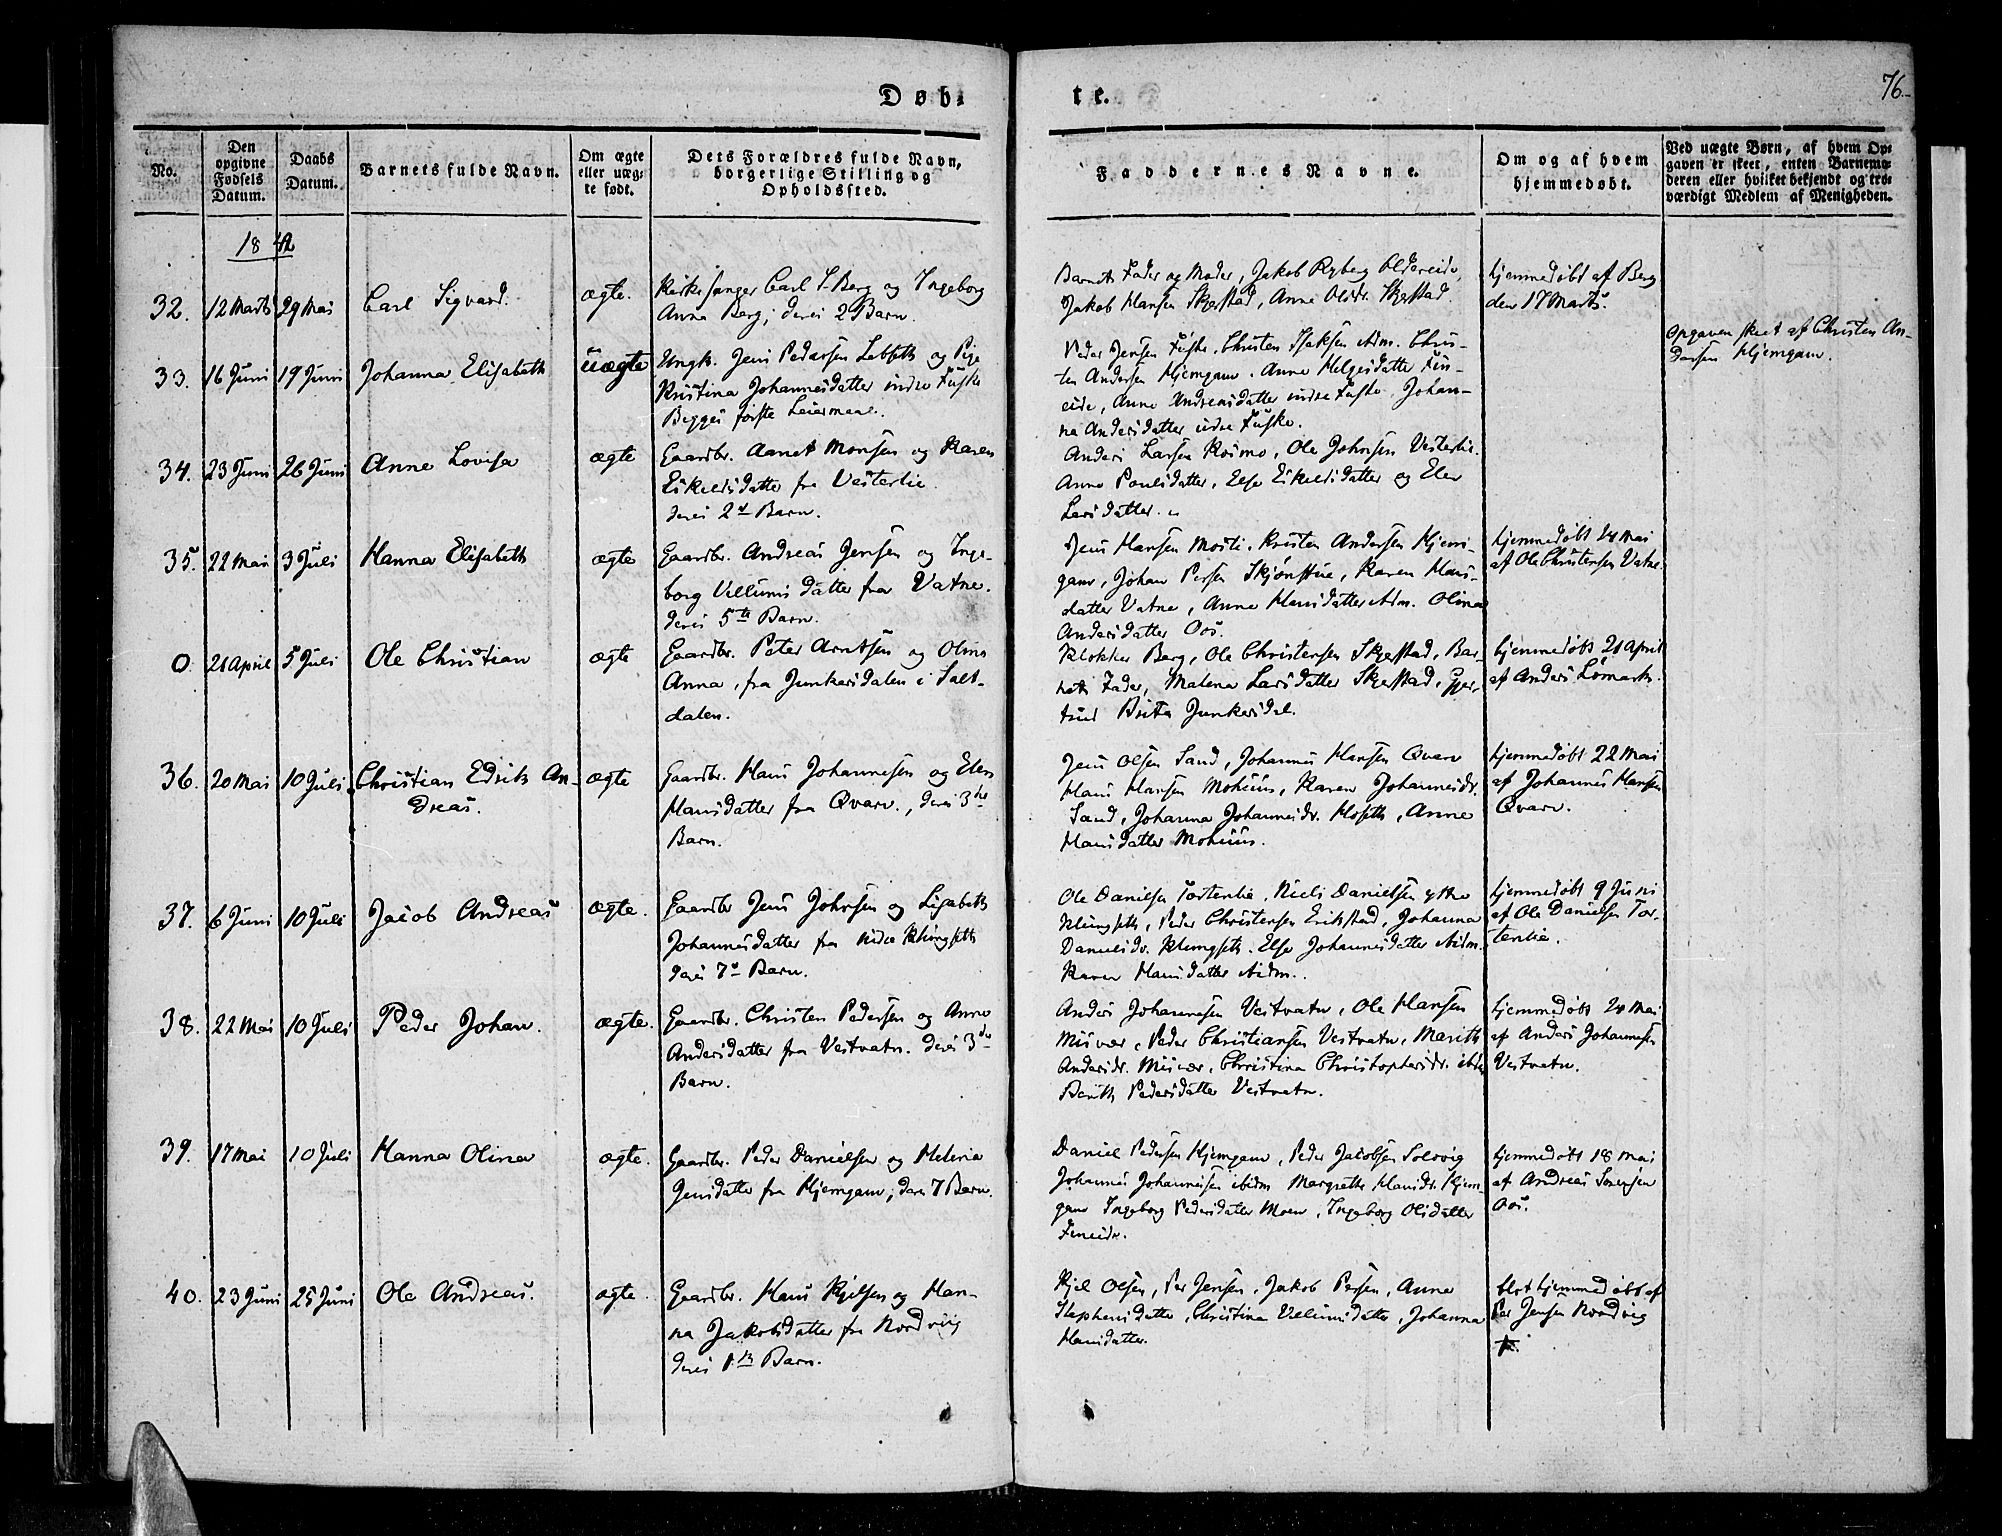 Døb-
te.
76.
No.
Den
opgivne
Fødsels
Datum.
Daabs
Datum.
Barnets fulde Navn.
Om ægte
eller uæg-
te født.
Dets Forældres fulde Navn,
borgerlige Stilling og
Opholdssted.
Faddernes Navne.
Om og af hvem
hjemmedøbt.
Ved uægte Børn, af hvem Op-
gaven er skeet, enten Barnemo-
deren eller hvilket bekjendt og tro-
værdigt Medlem af Menigheden.
1842
32. 12 Marts 29 Mai Carl Sigvard. ægte.
Kirkesanger Carl S. Berg og Ingeborg
Anna Berg; deres 2 Barn.
Barnets Fader og Moder, Jakob Ryberg Oldereide,
Jakob Hansen Skjestad, Anne Olsdr. Skjestad.
hjemmedøbt af Berg
den 17 Marts.
33. 16 Juni 19 Juni Johanna Elisabeth uægte
Ungk. Jens Pedersen Lebseth og Pige
Kristina Johannesdatter indre Fuske
Begges første Leiermaal.
Peder Jensen Fuske, Christen Isaksen ibidm. Chris-
ten Andersen Hjemgam. Anne Helgesdatter Fin-
eide, Anne Andreasdatter indre Fuske. Johan-
na Andersdatter indre Fuske.
Opgaven skeet af Christen An-
dersen Hjemgam.
34. 23 Juni 26 Juni Anne Lovisa ægte
Gaardbr. Aanet Monsen og Karen
Eskelsdatter fra Vesterlie.
deres 2d Barn.
Anders Larsen Kosmo, Ole Johnsen Vesterlie.
Anne Poulsdatter, Else Eskelsdatter og Elen
Larsdatter.
35. 22 Mai 3 Juli Hanna Elisabeth ægte
Gaardbr. Andreas Jensen og Inge-
borg Villumsdatter fra Vatne.
deres 5te Barn.
Jens Hansen Mosti. Kristen Andersen Hjem-
gam, Johan Persen Skjønstue, Karen Hans-
datter Vatne, Anne Hansdatter ibdm. Olina
Andersdatter Oos.
hjemmedøbt 24 Mai
af Ole Christensen Vatne
0. 21 April 5 Juli Ole Christian ægte
Gaardbr. Peter Arntsen og Olina
Anna, fra Junkersdalen i Salt-
dalen.
Klokker Berg, Ole Christensen Skjestad, Bar-
nets Fader, Malena Larsdatter Skjestad, Gjer-
trud Brita Junkersdal.
hjemmedøbt 21 April
af Anders
36. 20 Mai 10 Juli Christian Edrik An-
dreas. ægte
Gaardbr. Hans Johannesen og Elen
Hansdatter fra Qvarv., deres 3die
Barn.
Jens Olsen Sand, Johannes Hansen Qvarv
Hans Hansen Mohuus, Karen Johannesdr.
Sand, Johanna Johannesdr. Hoseth, Anne
Hansdatter Mohuus.
hjemmedøbt 22 Mai
af Johannes Hansen
Qvarv.
37. 6 Juni 10 Juli Jacob Andreas ægte.
Gaardbr Jens Johnsen og Lisabeth
Johannesdatter fra nidre Klungseth
deres 7de Barn.
Ole Danielsen Tortenlie, Niels Danielsen ytre
Klungseth, Peder Christensen Erikstad, Johanna
Danielsdr. Klungseth. Else Johannesdatter ibidm.
Karen Hansdatter ibidm.
hjemmedøbt 9 Juni
af Ole Danielsen Tor-
tenlie.
38. 22 Mai 10 Juli Peder Johan. ægte.
Gaardbr. Christen Pedersen og Anne
Andersdatter fra Vestvatn. deres 3de
Barn.
Anders Johannesen Vestvatn, Ole Hansen
Misvær, Peder Christiansen Vestvatn, Marith
Andersdr. Misvær, Christina Christophersdr. ibdm
Berith Pedersdatter Vestvatn.
hjemmedøbt 24 Mai
af Anders Johannesen
Vestvatn.
39. 17 Mai 10 Juli Hanna Olina ægte.
Gaardbr. Peder Danielsen og Helena
Jensdatter fra Hjemgam; deres 7 Barn.
Daniel Pedersen Hjemgam, Peder Jacobsen Solsvig
Johannes Johannesen ibidm Margrethe Hansdr. Hjem-
gam Ingeborg Pedersdatter Moen, Ingeborg Olsdatter
Fineide.
hjemmedøbt 18 Mai
af Andreas Sørensen
Oos.
40. 23 Juni 25 Juni Ole Andreas. ægte.
Gaardbr. Hans Kjelsen og Han-
na Jakobsdatter fra Nordvig
deres 1ste Barn.
Kjel Olsen, Per Jensen, Jakob Persen, Anne
Stephensdatter, Christina Villumsdatter, Johanna
Hansdatter.
blot hjemmedøbt af
Per Jensen Nordvig